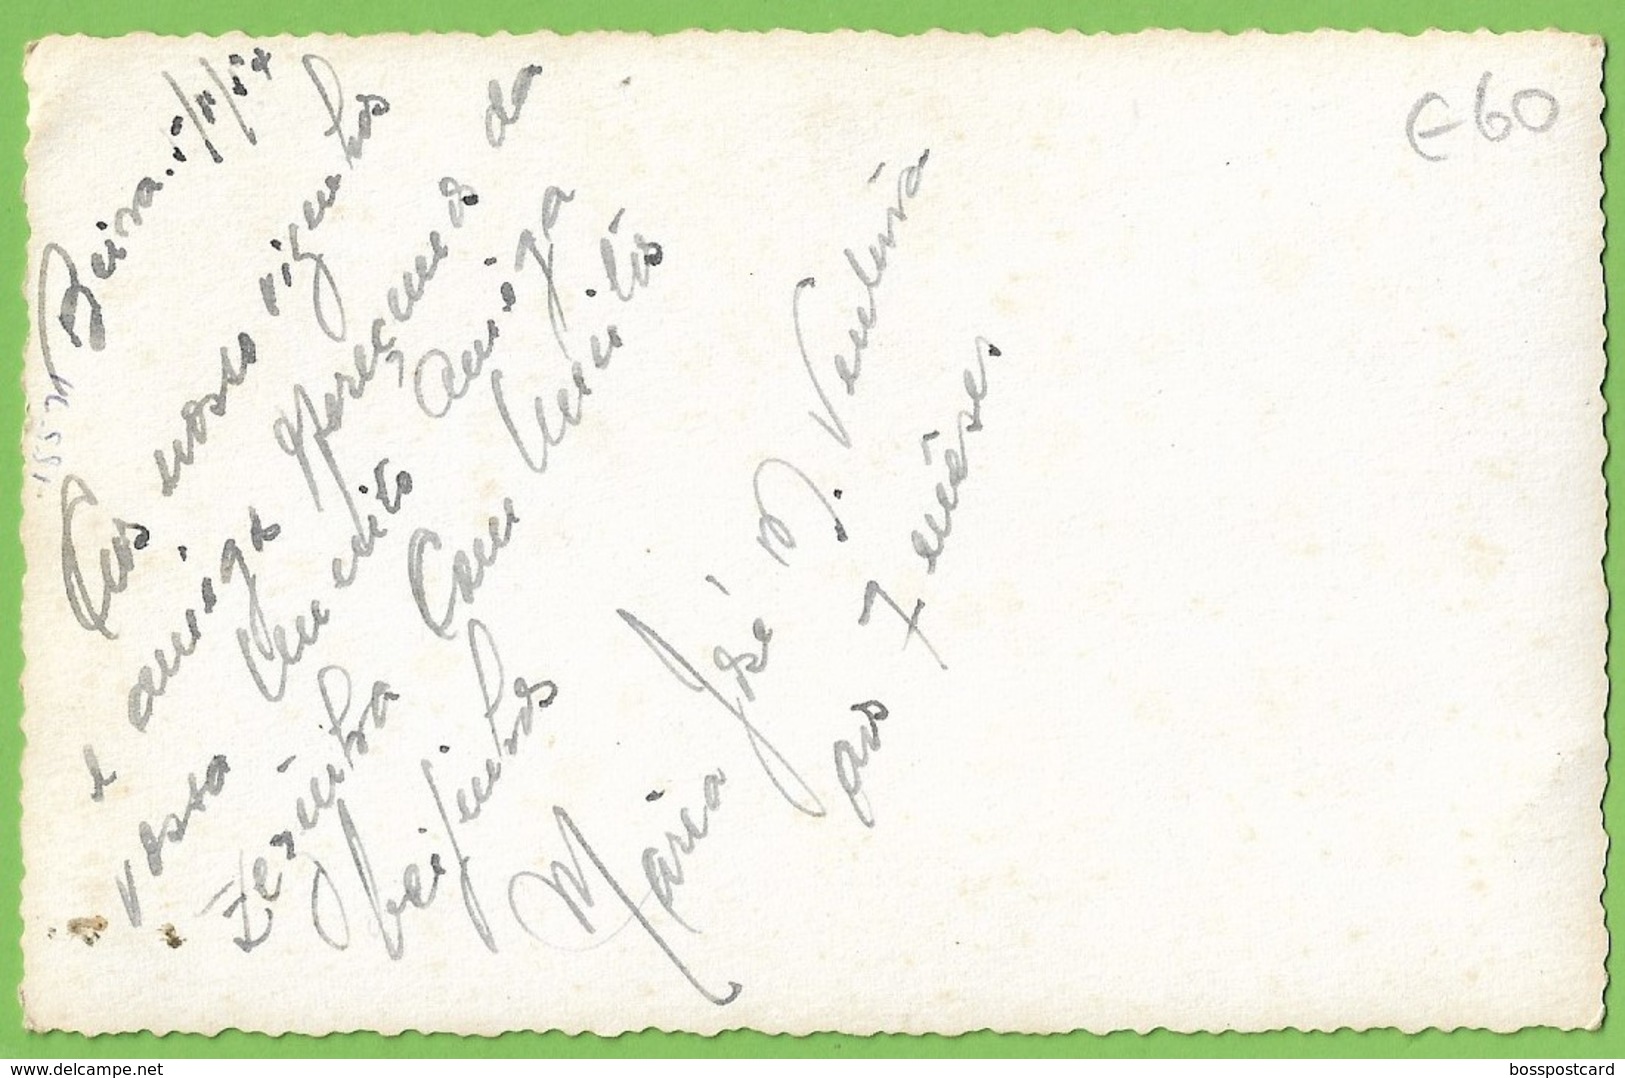 Beira.
Aos nossos vizinhos
e amigos oferecemos da
vossa muito amiga
Zézinha com muitos
beijinhos
Mária José M. Ventura
aos 7 mêses.
€60
delcampe.net
bosspostcard